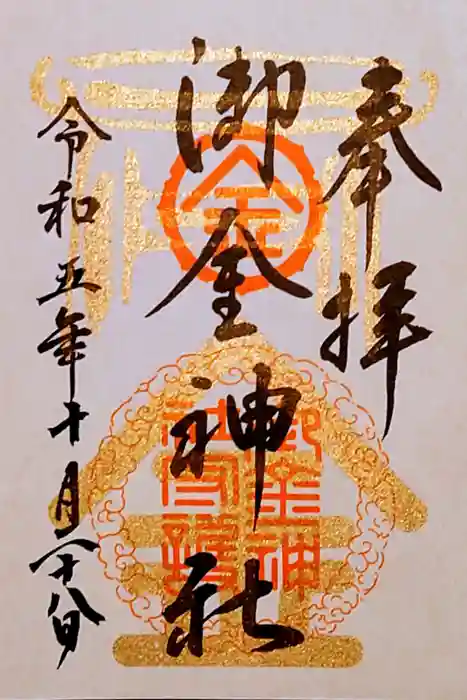 奉拝
金
御金神社
御金神社守護
令和五年十月二十八日